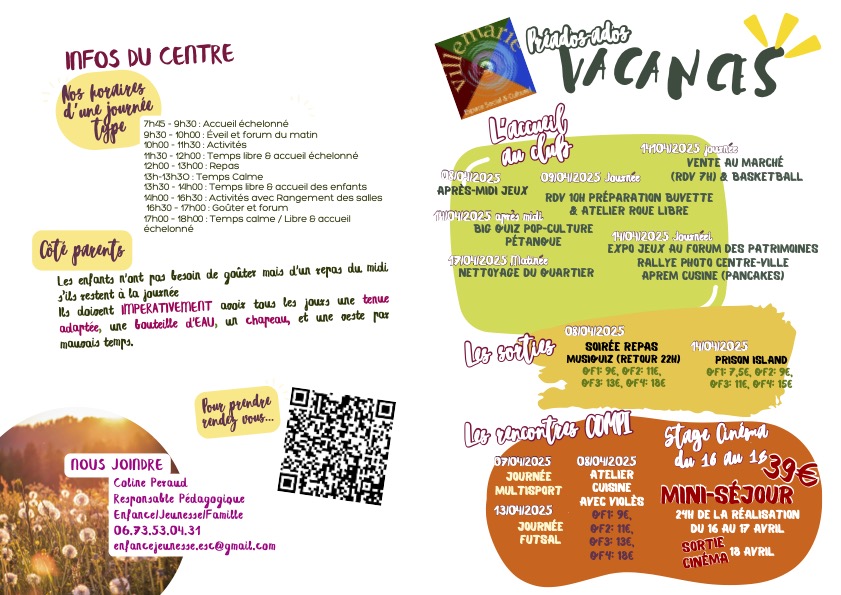 INFOS DU CENTRE
Nos horaires
d'une journée
type
7h45 - 9h30 : Accueil échelonné
9h30 - 10h00 : Éveil et forum du matin
10h00 - 11h30 : Activités
11h30 - 12h00 : Temps libre & accueil échelonné
12h00 - 13h00 : Repas
13h-13h30 : Temps Calme
13h30 - 14h00 : Temps libre & accueil des enfants
14h00 - 16h30 : Activités avec Rangement des salles
16h30 - 17h00 : Goûter et forum
17h00 - 18h00 : Temps calme / Libre & accueil
échelonné
Côté parents
Les enfants n'ont pas besoin de goûter mais d'un repas du midi
s'ils restent à la journée
Ils doivent IMPERATIVEMENT avoir tous les jours une tenue
adaptée, une bouteille d'EAU, un chapeau, et une veste par
mauvais temps.
Pour prendre
rendez vous...
NOUS JOINDRE
Coline Peraud
Responsable Pédagogique
Enfance/Jeunesse/Famille
06.73.53.04.31
enfancejeunesse.esc@gmail.com
villemarie
Espace Social & Culturel
Préados-ados
VACANCES
L'accueil
au club
08/04/2025
APRÈS-MIDI JEUX
09/04/2025 Journée
RDV 10H PRÉPARATION BUVETTE
& ATELIER ROUE LIBRE
14/04/2025 journée
VENTE AU MARCHÉ
(RDV 7H) & BASKETBALL
14/04/2025 après midi
BIG QUIZ POP-CULTURE
PÉTANQUE
17/04/2025 Matinée
NETTOYAGE DU QUARTIER
14/04/2025 Journéel
EXPO JEUX AU FORUM DES PATRIMOINES
RALLYE PHOTO CENTRE-VILLE
APREM CUSINE (PANCAKES)
Les sorties
08/04/2025
SOIRÉE REPAS
MUSIQUIZ (RETOUR 22H)
QF1: 9€, QF2: 11€,
QF3: 13€, QF4: 18€
14/04/2025
PRISON ISLAND
QF1: 7,5€, QF2: 9€,
QF3: 11€, QF4: 15€
Les rencontres COMPI
07/04/2025
JOURNÉE
MULTISPORT
13/04/2025
JOURNÉE
FUTSAL
08/04/2025
ATELIER
CUISINE
AVEC VIOLÈS
QF1: 9€,
QF2: 11€,
QF3: 13€,
QF4: 18€
Stage Cinéma
du 16 au 18
39€
MINI-SÉJOUR
24H DE LA RÉALISATION
DU 16 AU 17 AVRIL
SORTIE
CINÉMA
18 AVRIL